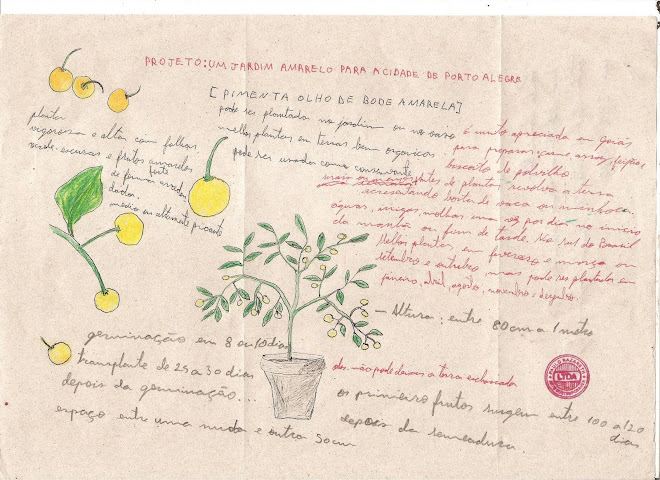 PROJETO: UM JARDIM AMARELO PARA A CIDADE DE PORTO ALEGRE
[PIMENTA OLHO DE BODE AMARELA]
plantas
vigorosas e altas com folhas
verde-escuras e frutos amarelos
de forma arredon
dados
médio ou altamente picante
pode ser plantada no jardim ou no vaso
melhor plantar em terras bem organicas
pode ser usada como conservante
é muito apreciada em Goiás
para preparar carne, arroz, feijão,
biscoito de polvilho
antes de plantar revolva a terra
acrescentando bosta de vaca ou minhoca.
aguar, molhar uma vez por dia no início
da manhã ou fim de tarde. No sul do Brasil
melhor plantar em fevereiro e março ou
setembro e outubro, mas pode ser plantada em
janeiro, abril, agosto, novembro e dezembro.
— Altura: entre 80cm a 1 metro
germinação em 8 ou 10 dias
transplante de 25 a 30 dias
depois da germinação...
espaço entre uma muda e outra 50cm
obs. não pode deixar a terra encharcada
os primeiro frutos surgem entre 100 a 120
dias
depois da semeadura.
LTDA